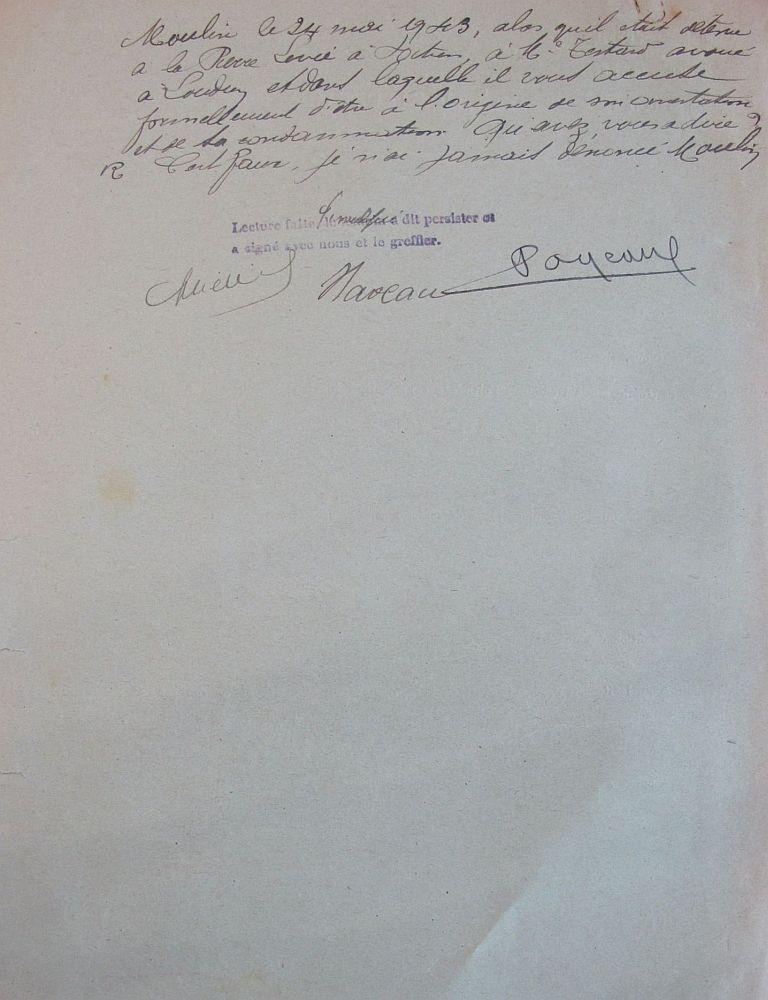 Moulin le 24 mai 1943, alors qu'il était détenu
a la Pierre Levée à Poitiers, à Me Testard avoué
a Loudun et dans laquelle il vous accuse
formellement d'être à l'origine de son arrestation
et de sa condamnation. Qu'avez vous a dire ?
R C'est faux, je n'ai jamais dénoncé Moulin
Lecture faite, a dit persister et
a signé avec nous et le greffier.